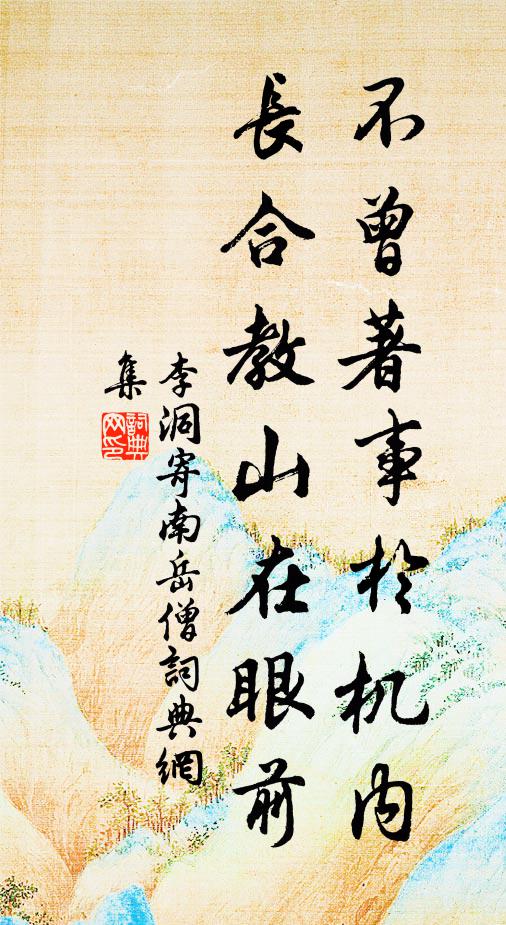 不曾著事於机内
長合教山在眼前
李洞寄南岳僧詞典網
集
詞典网印